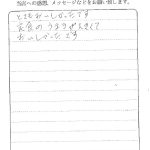 当店への感想、メッセージなどをお願い致します。
とてもおいしかったです
定食のうまさがんさくて
おいしかったです